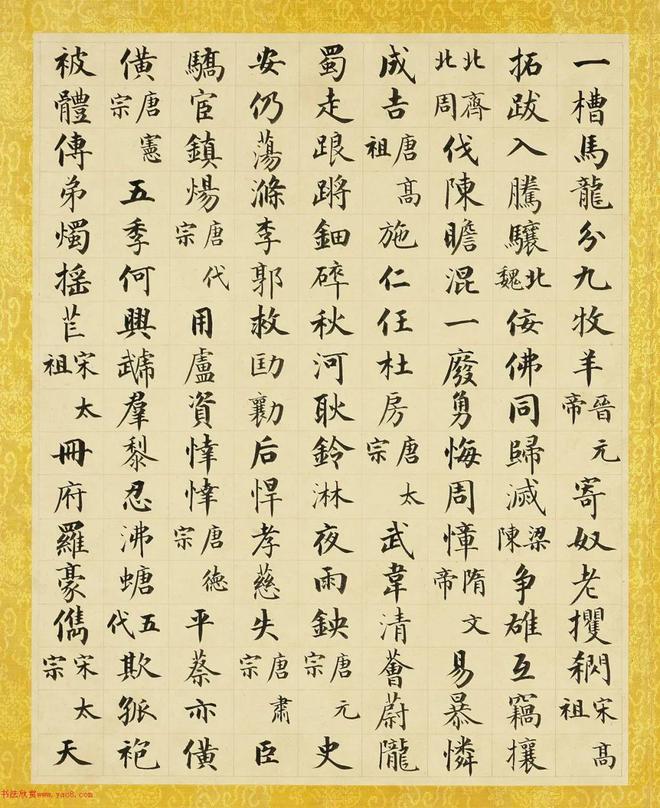 一槽馬龍分九牧羊晉元帝寄奴老攫宋高祖
拓跋入騰驤北魏佞佛同歸滅梁陳争雄互竊攘
北齊北周伐陳瞻混一廢勇悔周慞隋文帝易暴憐
成吉唐高祖施仁任杜房唐太宗武韋清薈蔚隴
蜀走踉蹡鈿碎秋河耿鈴淋夜雨鉠唐元宗史
安仍蕩滌李郭救劻勷后悍孝慈失唐肅宗臣
驕宦鎮煬唐代宗用盧資悻悻唐德宗平蔡亦僙
僙唐憲宗五季何興虣羣黎忍沸螗五代欺孤袍
被體傳弟燭搖芒宋太祖冊府羅豪儁宋太宗天
书法欣赏www.yac8.com